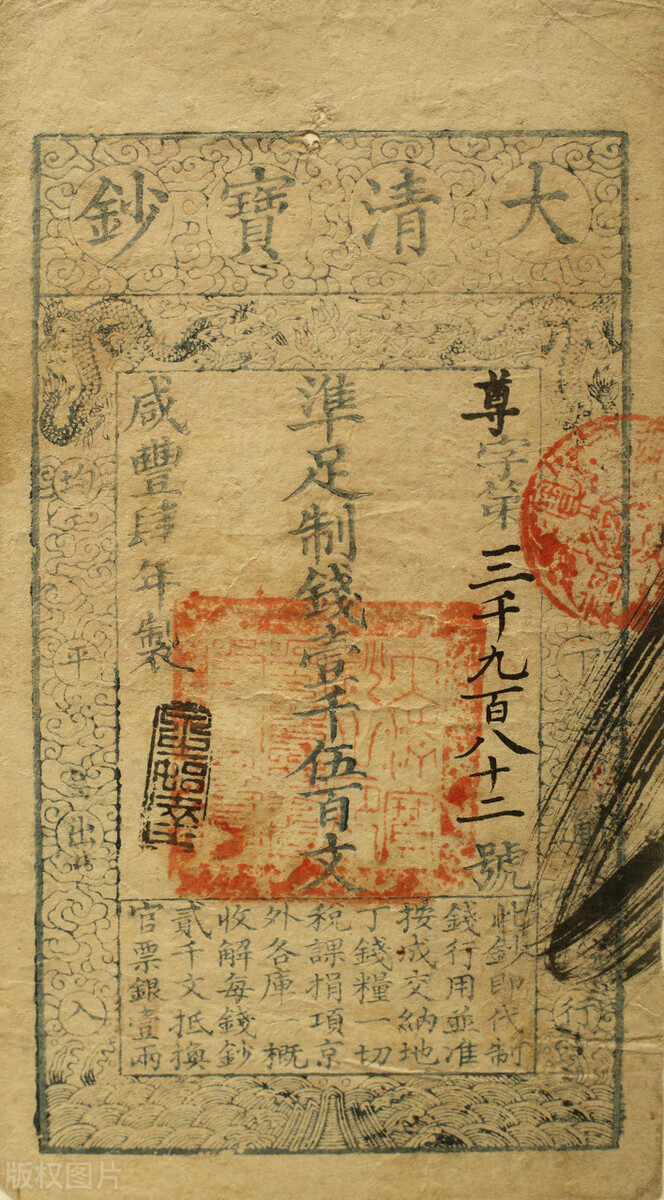 大清寶鈔
下通行
尊字第三千九百八十二號
準足制錢壹千伍百文
咸豐肆年製
均平出入
此鈔即代制
錢行用並准
按成交納地
丁錢糧一切
稅課捐項京
外各庫一概
收解每錢鈔
貳千文抵換
官票銀壹兩
版权图片